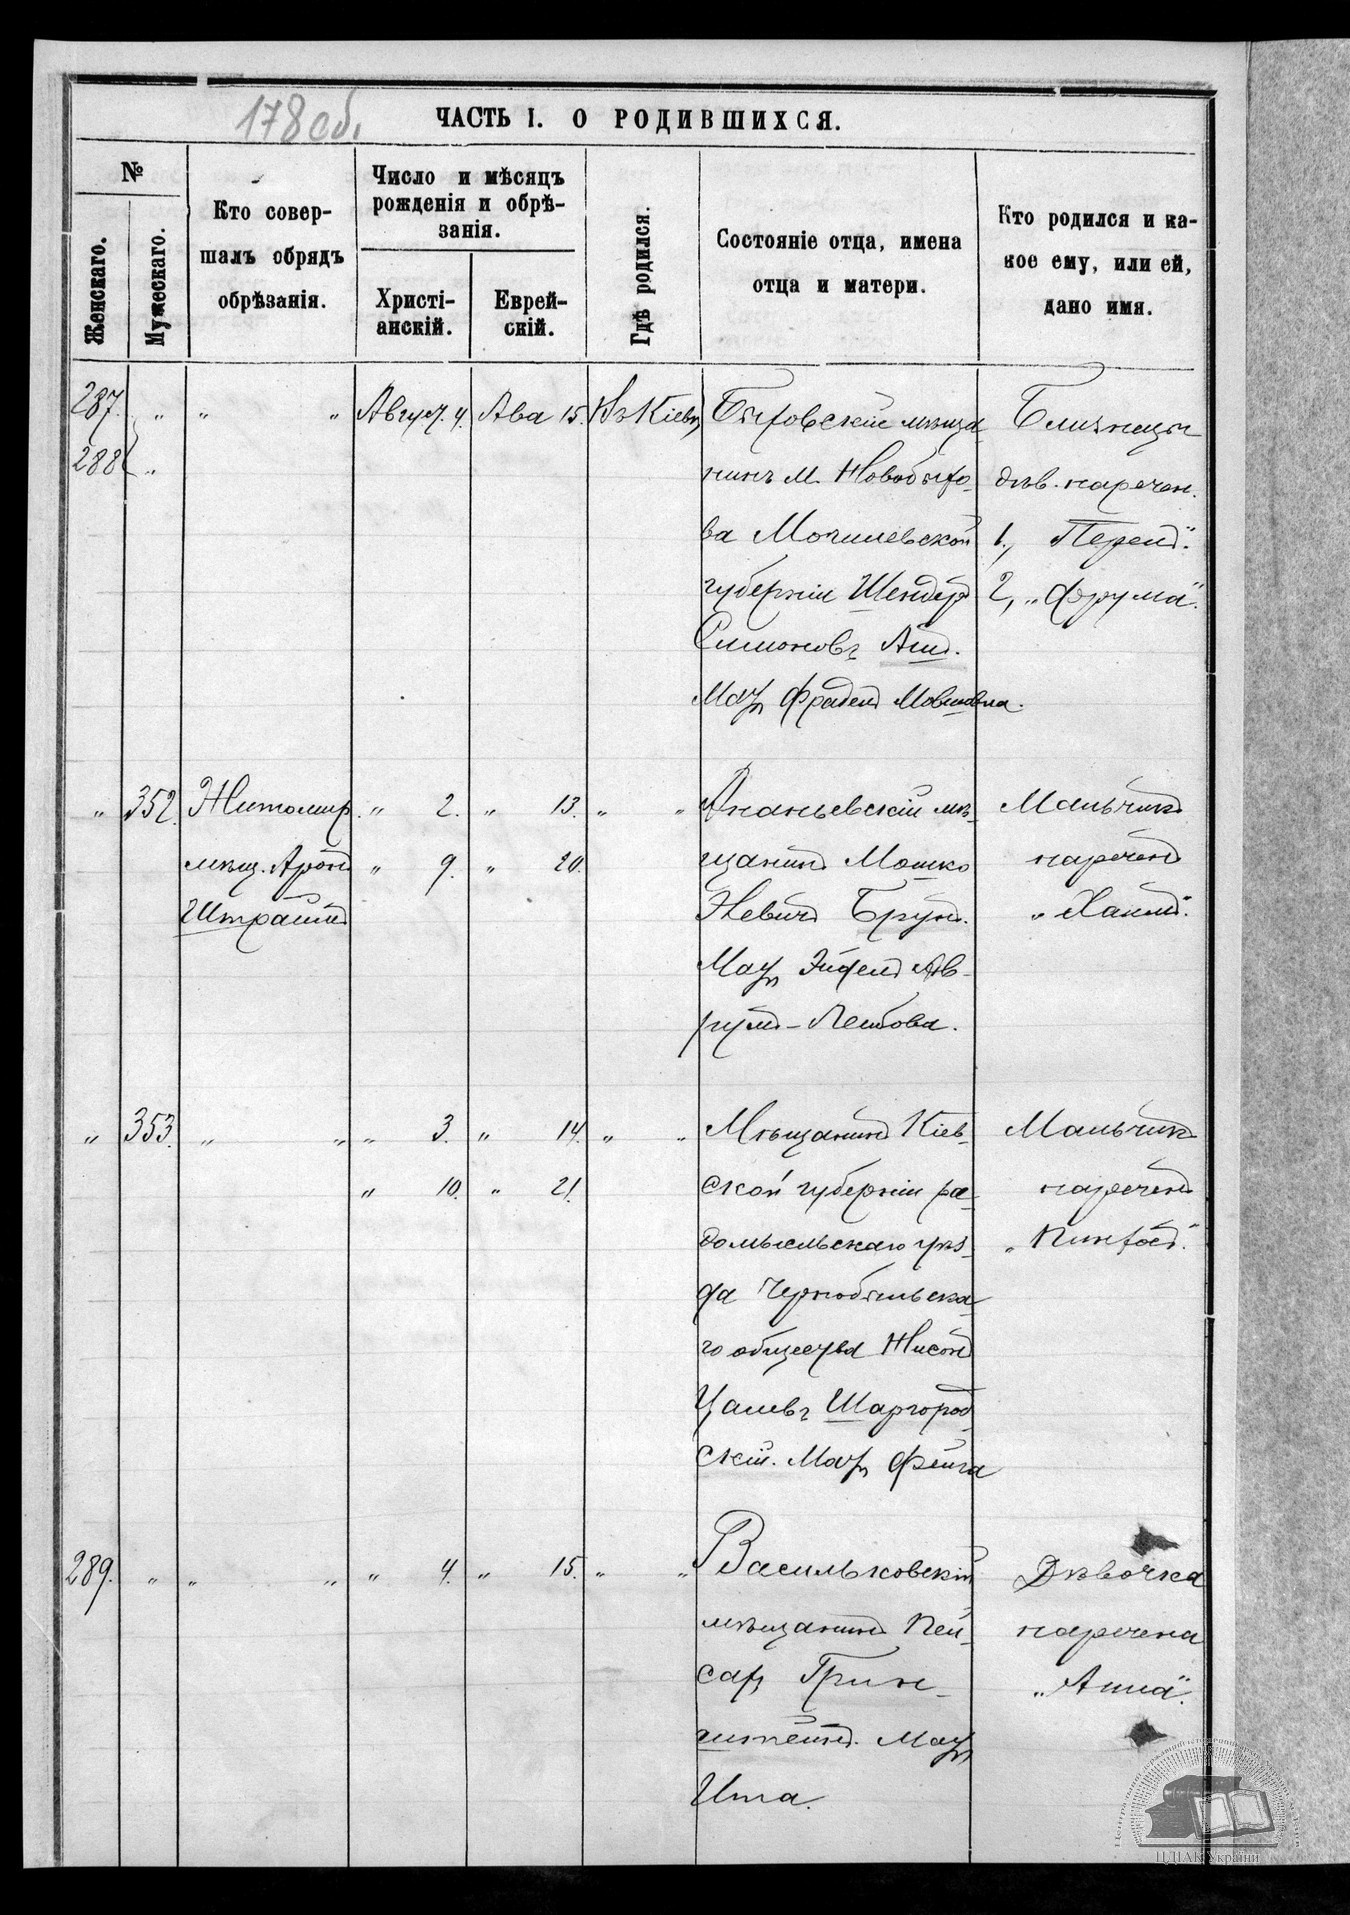 178 об.
ЧАСТЬ I. О РОДИВШИХСЯ.
№
Женскаго.
Мужескаго.
Кто совер-
шалъ обрядъ
обрѣзанія.
Число и мѣсяцъ
рожденія и обрѣ-
занія.
Христі-
анскій.
Еврей-
скій.
Гдѣ родился.
Состояніе отца, имена
отца и матери.
Кто родился и ка-
кое ему, или ей,
дано имя.
287. " " " Август. 4. Ава 15. Въ Кіевѣ
288 "
Быховскій мѣща
нинъ м. Новобыхо-
ва Могилевской
губерніи Шендеръ
Симоновъ
Мать Фрадель Мовшовна.
Близнецы
дѣв. наречен.
1, "Перель".
2, "Фрума".
" 352. Житомир. " 2. " 13. " "
мѣщ. Аронъ " 9. " 20.
Штрамъ
Ананьевскій мѣ-
щанинъ Мошко
Брунъ.
Мать Эйдель Ав-
румъ-Лейбова.
Мальчикъ
нареченъ
"Хаимъ".
" 353. " " " 3. " 14. " "
" 10. " 21.
Мѣщанинъ Кіев-
ской губерніи ра-
домысльскаго уѣз-
да Чернобыльска-
го общества Нисонъ
Цалевъ Шаргород-
скій. Мать Фейга
Мальчикъ
нареченъ
"Пинхасъ".
289. " " " " 4. " 15. " "
Васильковскій
мѣщанинъ Пей-
сахъ Грин-
штейнъ. Мать
Ита.
Дѣвочка
наречена
"Анна".
ЦДІАК України